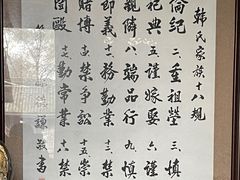 韓氏家族十八規
倫紀 二重祖塋 三慎
祀典 五謹嫁娶 六謹
親隣 八端品行 九慎
節義 十一務勤
賭博 十四禁爭訟 十五崇
鬪毆 十七勤常業 十八禁
謙敬書